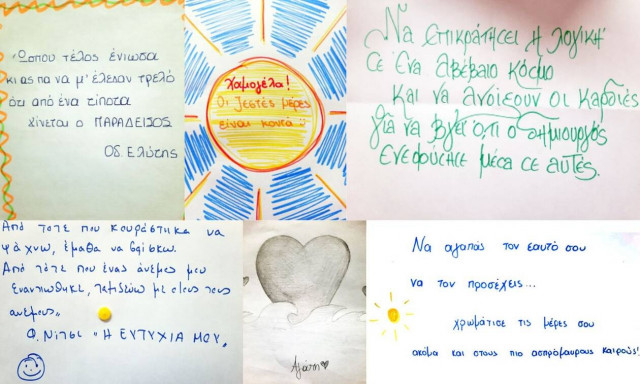 «Ώσπου τέλος ένιωσα
κι ας πα να μ' έλεγαν τρελό
ότι από ένα τίποτα
γίνεται ο ΠΑΡΑΔΕΙΣΟΣ
Οδ. Ελύτης
Χαμογέλα!
Οι ζεστές μέρες
είναι κοντά :)
Να επικρατήσει η λογική
σε ένα αβέβαιο κόσμο
και να ανοίξουν οι καρδιές
για να βγει ό,τι ο δημιουργός
ενεφύσησε μέσα σε αυτές.
Από τότε που κουράστηκα να
ψάχνω, έμαθα να βρίσκω.
Από τότε που ένας άνεμος μου
εναντιώθηκε, ταξιδεύω με όλους τους
ανέμους»
Φ. Νίτσε "Η ΕΥΤΥΧΙΑ ΜΟΥ"
Αγάπη
Να αγαπάς τον εαυτό σου
να τον προσέχεις...
χρωμάτισε τις μέρες σου
ακόμα και στους πιο ασπρόμαυρους καιρούς!